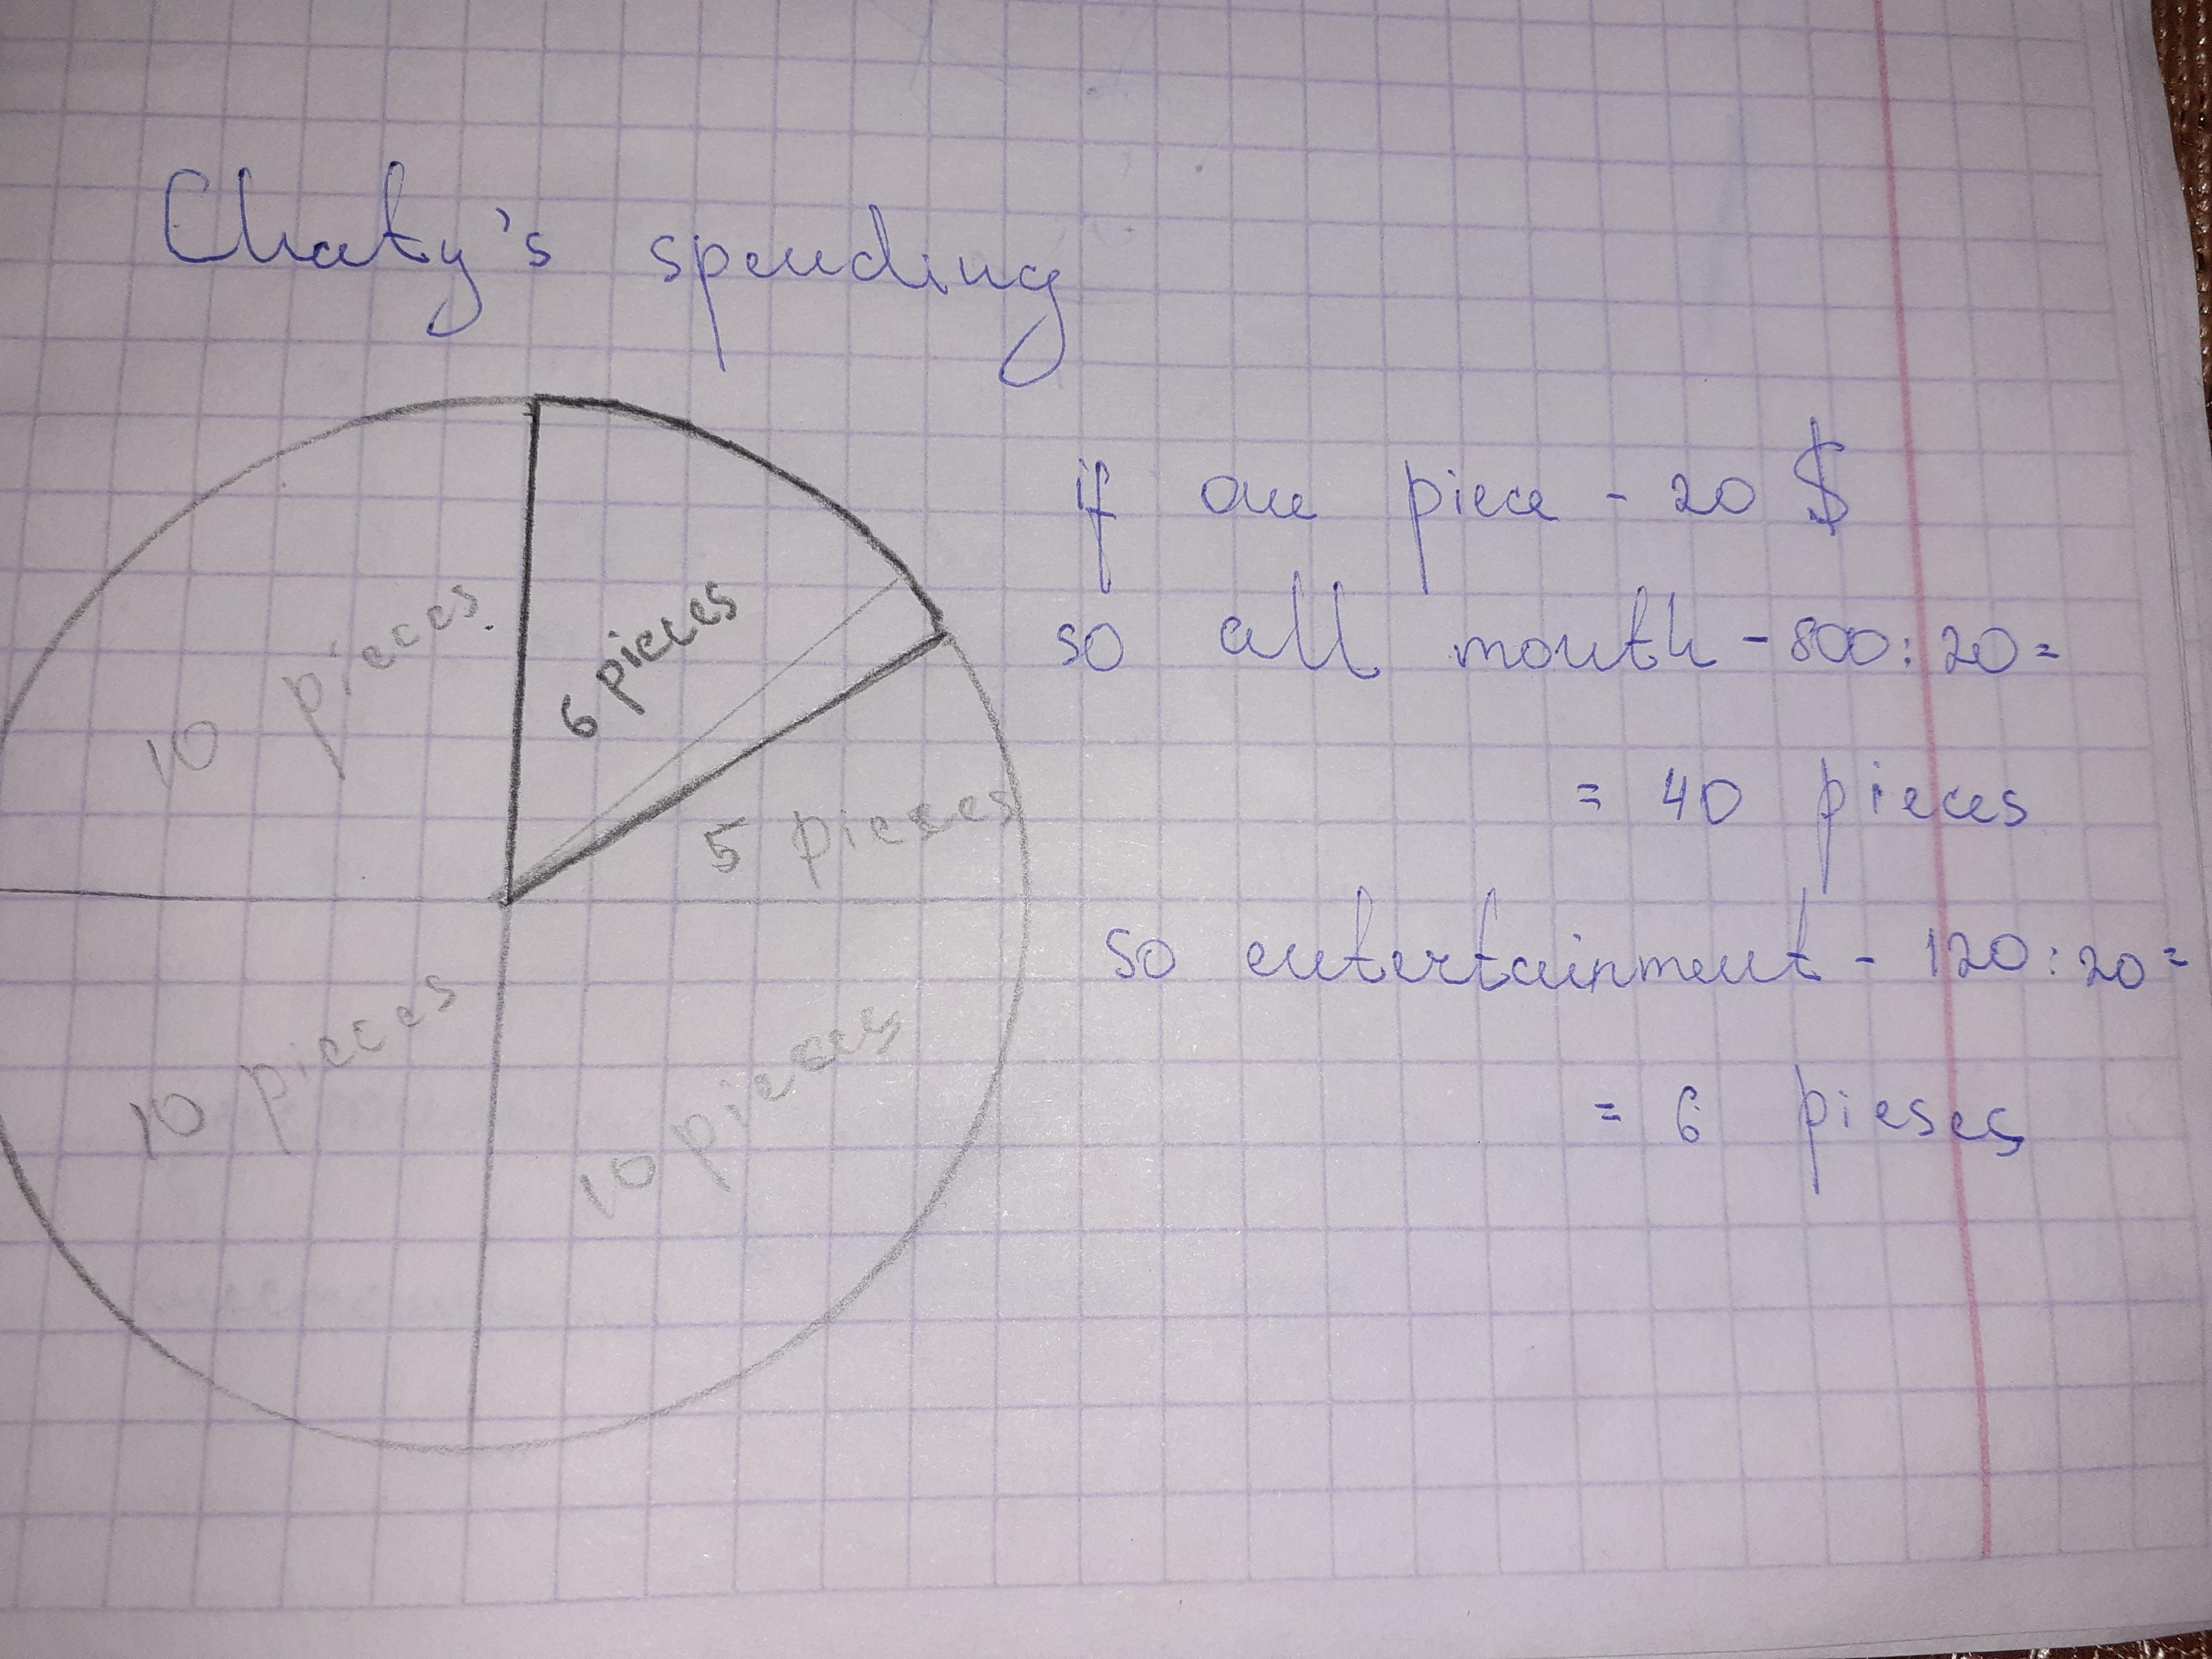 Chaty's spending
if one piece - 20 $
so all month - 800 : 20 =
= 40 pieces
so entertainment - 120 : 20 =
= 6 pieses
10 pieces
6 pieces
5 pieses
10 pieces
10 pieces